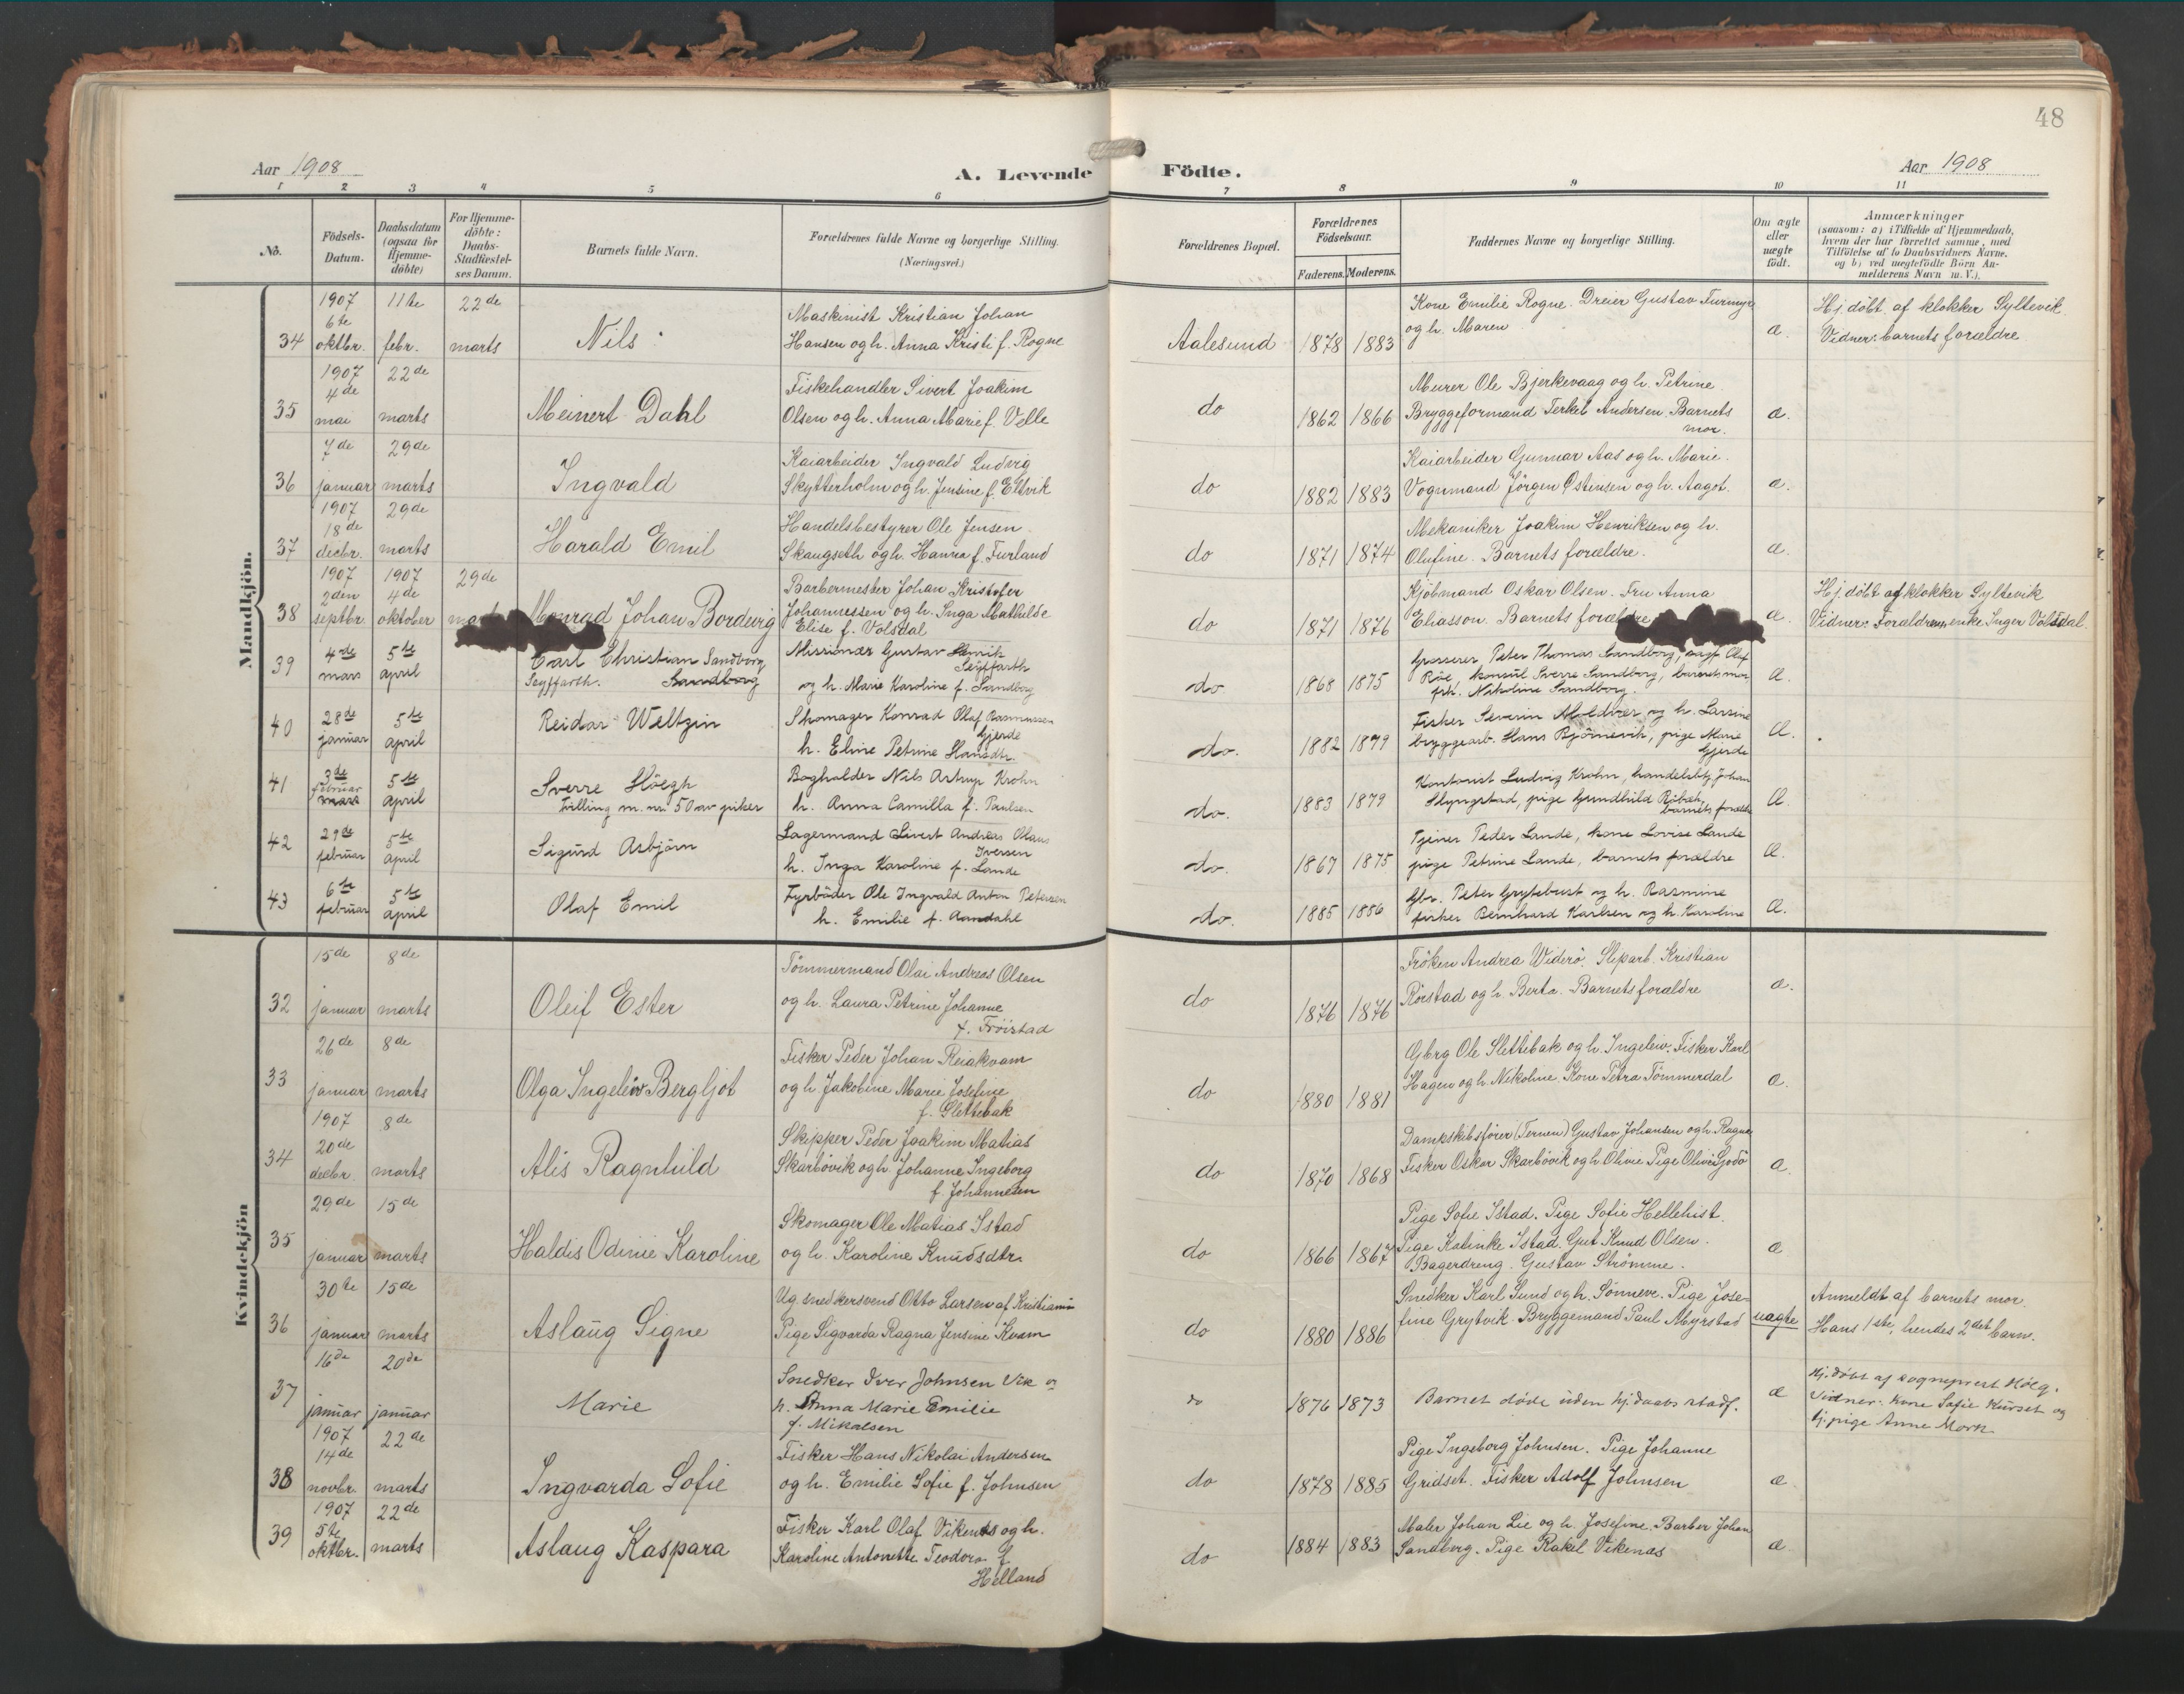 48
Aar 1908
A. Levende Födte.
Aar 1908
1 2 3 4 5 6 7 8 9 10 11
No.
Födsels-Datum.
Daabsdatum (ogsaa for Hjemmedöbte)
For Hjemmedöbte: Daabs-Stadfæstelses Datum.
Barnets fulde Navn.
Forældrenes fulde Navne og borgerlige Stilling. (Næringsvei.)
Forældrenes Bopæl.
Forældrenes Födselsaar.
Faderens. Moderens.
Faddernes Navne og borgerlige Stilling.
Om ægte eller uægte födt.
Anmærkninger
(saasom: a) i Tilfælde af Hjemmedaab,
hvem der har forrettet samme, med
Tilföielse af to Daabsvidners Navne.
og b) ved uægtefödte Börn An-
melderens Navn m. V.).
Mandkjön.
34 1907 6te oktbr. 11te febr. 22de marts Nils
Maskinist Kristian Johan
Hansen og h. Anna Kristi f. Rogne
Aalesund 1878 1883
Kone Emilie Rogne. Dreier Gustav Furmyr
og h. Maren
æ.
Hj. döbt af klokker Syltevik.
Vidner: barnets forældre
35 1907 4de mai 22de marts Meinert Dahl
Fiskehandler Sivert Joakim
Olsen og h. Anna Marie f. Velle
do 1862 1866
Murer Ole Bjerkevaag og h. Petrine.
Bryggeformand Terkel Andersen. Barnets
mor.
æ.
36 7de januar 29de marts Ingvald
Kaiarbeider Ingvald Ludvig
Skytterholm og h. Jensine f. Eltvik
do 1882 1883
Kaiarbeider Gunnar Aas og h. Marie.
Vognmand Jörgen Östensen og h. Aagot.
æ.
37 1907 18de decbr. 29de marts Harald Emil
Handelsbestyrer Ole Jensen
Skaugseth og h. Hanna f. Furland
do 1871 1874
Mekaniker Joakim Henriksen og h.
Olufine. Barnets forældre.
æ.
38 1907 2den septbr. 1907 4de oktober 29de Monrad Johan Bordevig
Barbermester Johan Kristofer
Johannessen og h. Inga Mathilde
Elise f. Volsdal
do 1871 1876
Kjöbmand Oskar Olsen. Fru Anna
Eliasson. Barnets forældre
æ.
Hj. döbt af klokker Syltevik
Vidner: Forældrene, enke Inger Völsdal.
39 4de mars 5te april Carl Christian Sandborg
Seyffarth. Sandborg
Missionær Gustav Henrik
Seyffarth
og h. Marie Karoline f. Sandborg
do. 1868 1875
Grosserer Peter Thomas Sandborg, Olaf
Röe, konsul Sverre Sandborg, barnets mor,
frk. Nikoline Sandborg.
Æ.
40 28de januar 5te april Reidar Weltzin
Skomager Konrad Olaf Rasmussen
Gjerde
h. Eline Petrine Hansdtr.
do. 1882 1879
Fisker Severin Moldvær og h. Larsine
bryggearb. Hans Björnevik, pige Marie
Gjerde
Æ.
41 3de februar mars 5te april Sverre Höegh
Tvilling m. nr. 50 av piker
Bogholder Nils Astrup Krohn
h. Anna Camilla f. Paulsen
do. 1883 1879
Kontorist Ludvig Krohn, handelsbtj. Johan
Slyngstad, pige Gundhild
barnets forældre
Æ.
42 29de februar 5te april Sigurd Asbjörn
Lagermand Sivert Andreas Olaus
Iversen
h. Inga Karoline f. Lande
do. 1867 1875
Tjener Peder Lande, kone Lovise Lande
pige Petrine Lande, barnets forældre
Æ.
43 6te februar 5te april Olaf Emil
Fyrböder Ole Ingvald Anton Petersen
h. Emilie f. Aandahl
do. 1885 1886
Gbr. Peter Grytebust og h. Rasmine
fisker Bernhard Karlsen og h. Karoline
Æ.
Kvindekjön
32 15de januar 8de marts Oleif Ester
Tömmermand Olai Andreas Olsen
og h. Laura Petrine Johanne
f. Tröistad
do 1876 1876
Fröken Andrea Widerö. Sliparb. Kristian
Rörstad og h. Berta. Barnets forældre
æ.
33 26de januar 8de marts Olga Ingeleiv Bergljot
Fisker Peder Johan Reiakvam
og h Jakobine Marie Josefine
f. Slettebak
do 1880 1881
Gbrg Ole Slettebak og h. Ingeleiv. Fisker Karl
Hagen og h. Nikoline. Kone Petra Tömmerdal
æ.
34 1907 20de decbr 8de marts Alis Ragnhild
Skipper Peder Joakim Matias
Skarbövik og h. Johanne Ingeborg
f. Johannesen
do 1870 1868
Dampskibsförer (Ternen) Gustav Johansen og h. Ragna
Fisker Oskar Skarbövik og h. Olivie Pige Olivie Gjodö
æ.
35 29de januar 15de marts Haldis Odinie Karoline
Skomager Ole Matias Istad
og h. Karoline Knudsdtr.
do 1866 1867
Pige Sofie Istad. Pige Sofie Hellehist.
Pige Katinke Istad. Gut Knud Olsen.
Bagerdreng. Gustav Strömme.
æ
36 30te januar 15de marts Aslaug Signe
Ug. snedkersvend Otto Larsen af Kristiania
Pige Sigvarda Ragna Jensine Kvam
do 1880 1886
Snedker Karl Sund og h. Sönneve. Pige Jose-
fine Grytvik. Bryggemand Paul Myrstad
uægte
Anmeldt af barnets mor.
Hans 1ste, hendes 2det barn.
37 16de januar 20de januar Marie
Snedker Iver Johnsen Vik og
h. Anna Marie Emilie
f. Mikalsen
do 1876 1873
Barnet döde uden hj.daabs stadf.
æ
Hj. döbt af sogneprest Höeg.
Vidner: Kone Sofie Kurset og
tj.pige Anne Mork
38 1907 14de novbr. 22de marts Ingvarda Sofie
Fisker Hans Nikolai Andersen
og h. Emilie Sofie f. Johnsen
do 1878 1885
Pige Ingeborg Johnsen. Pige Johanne
Gridset. Fisker Adolf Johnsen
æ
39 1907 5te oktbr. 22de marts Aslaug Kaspara
Fisker Karl Olaf Vikenes og h.
Karoline Antonette Teodora f.
Helland
do 1884 1883
Maler Johan Lie og h. Josefine. Barber Johan
Sandberg. Pige Rakel Vikenas
æ.